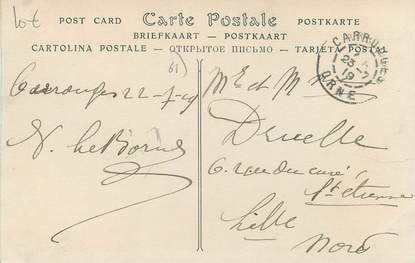 lot
POST CARD Carte Postale POSTKARTE
BRIEFKAART — POSTKAART
CARTOLINA POSTALE — ОТКРЫТОЕ ПИСЬМО — TARJETA POSTAL
CARROUGES
23
ORNE
61
Carrouges 22-7-19
Mr et Mme
6. rue du curé
St Etienne
Lille
Nord